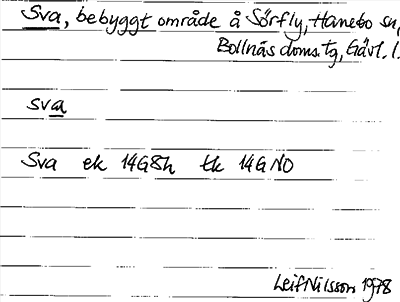 Sva, bebyggt område å Sörfly, Hanebo sn,
Bollnäs doms.tg, Gävl. l.
sva
Sva ek 14G8h tk 14G NO
Leif Nilsson 1978